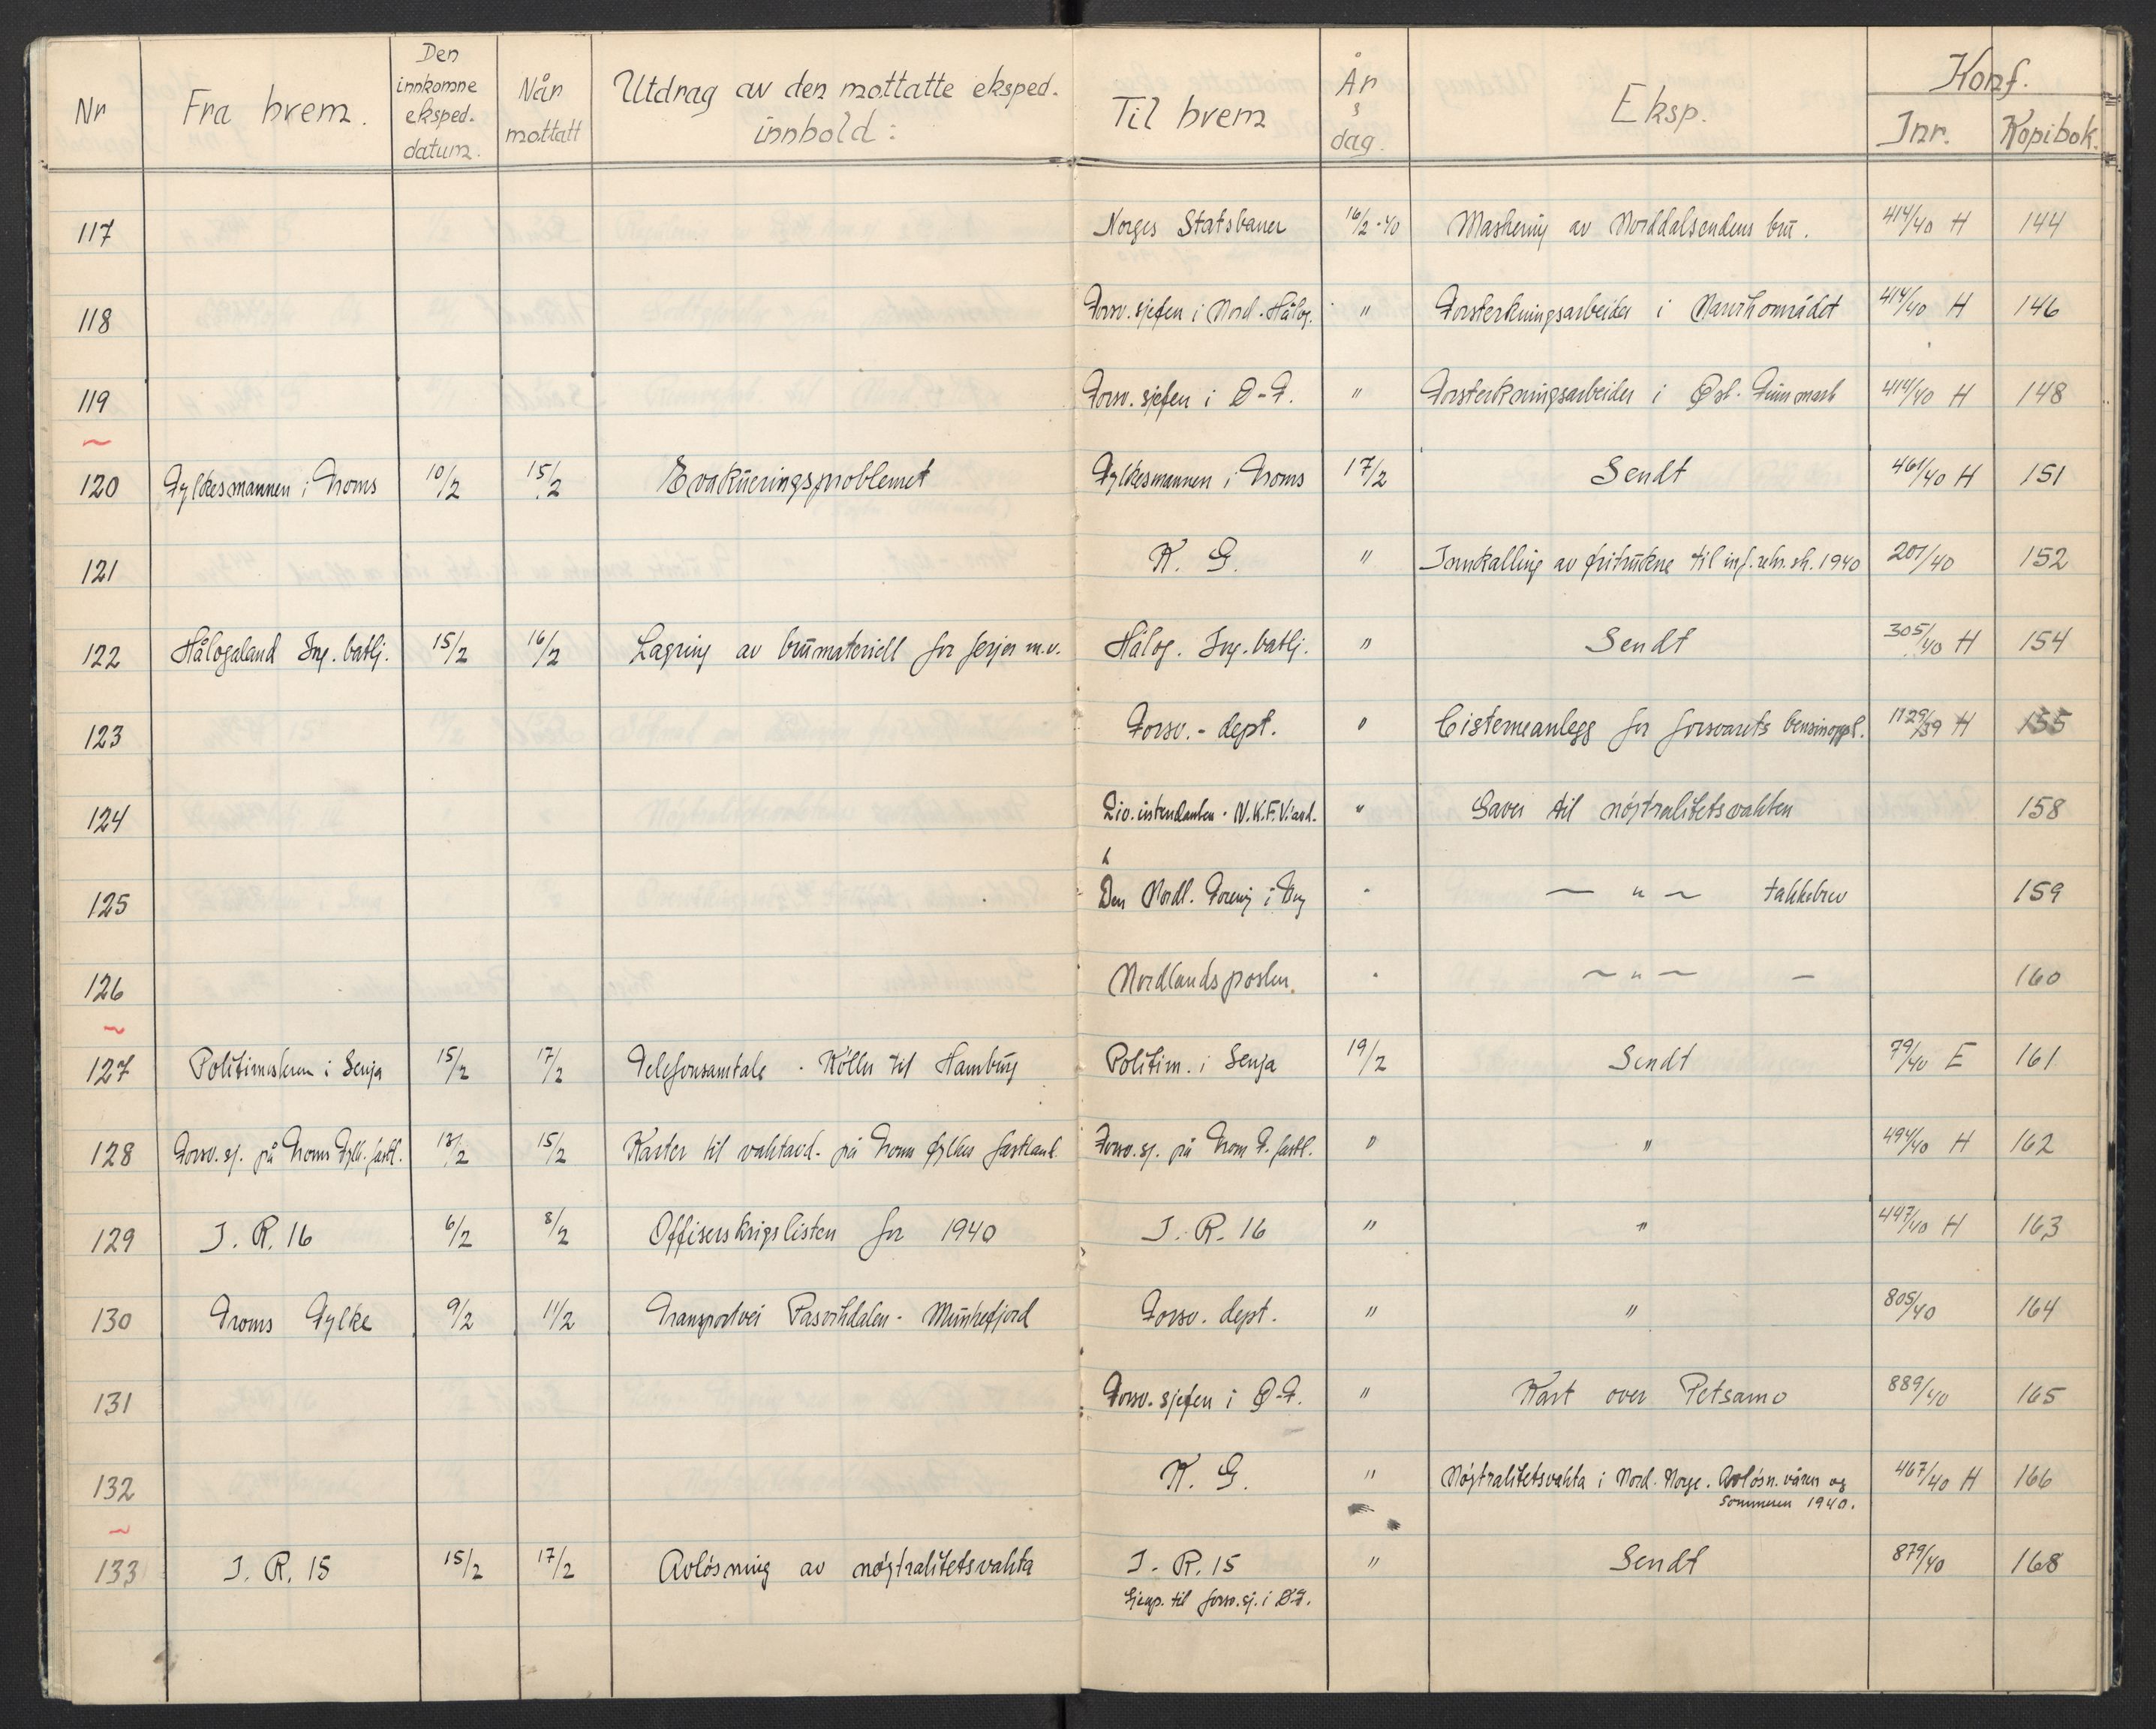 Nr
Fra hvem.
Den innkomne eksped. datum.
Når mottatt
Utdrag av den mottatte eksped. innhold:
Til hvem
År & dag.
Eksp.
Konf.
Jnr.
Kopibok.
117 Norges Statsbaner 16/2-40 Maskering av Norddalsendens bru. 414/40 H 144
118 Forsv. sjefen i Nord-Hålog. " Forsterkningsarbeider i Narvikområdet 414/40 H 146
119 Forsv. sjefen i Ø-F. " Forsterkningsarbeider i Øst-Finnmark 414/40 H 148
120 Fylkesmannen i Troms 10/2 15/2 Evakueringsproblemet Fylkesmannen i Troms 17/2 Sendt 461/40 H 151
121 K. G. " Innkalling av fritrukne til inf. rekr. sk. 1940 201/40 152
122 Hålogaland Ing. batlj. 15/2 16/2 Lagring av brumateriell for ferjer m.v. Hålog. Ing. batlj. " Sendt 305/40 H 154
123 Forsv.-dept. " Cisterneanlegg for forsvarets bensinoppl. 1129/39 H 155
124 Div. intendanten. N.K.F.V. " Gaver til nøytralitetsvakten 158
125 Den Nordl. Forening i " — " — takkebrev 159
126 Nordlandsposten. " — " — — 160
127 Politimesteren i Senja 15/2 17/2 Telefonsamtale. Köller til Hamburg Politim. i Senja 19/2 Sendt 79/40 E 161
128 Forsv. sj. på Troms Fylk. fastl. 13/2 15/2 Karter til vaktavd. på Troms fylkes fastland. Forsv. sj. på Trom F. fastl. " " 494/40 H 162
129 I. R. 16 6/2 8/2 Offiserskrigslisten for 1940 I. R. 16 " " 447/40 H 163
130 Troms Fylke 9/2 11/2 Transportvei Pasvikdalen - Munkefjord Forsv. dept. " " 805/40 164
131 Forsv. sjefen i Ø-F. " Kart over Petsamo 889/40 165
132 K. G. " Nøytralitetsvakta i Nord-Norge. Avløsn. våren og
sommeren 1940. 467/40 H 166
133 I. R. 15 15/2 17/2 Avløsning av nøytralitetsvakta I. R. 15 " Sendt 879/40 168
Gjenp. til forsv. sj. i ØF.